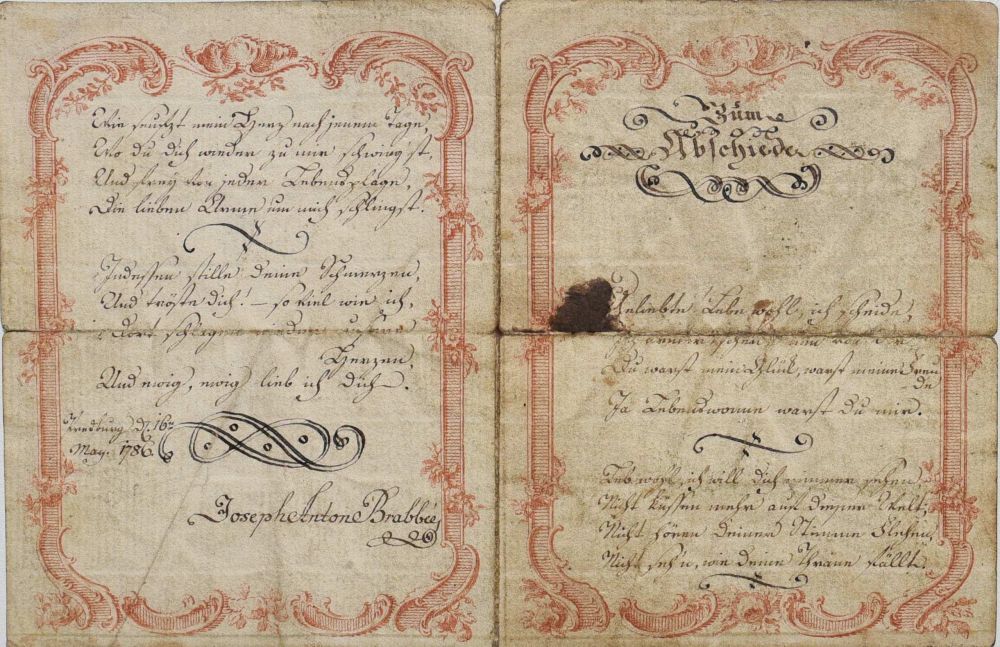 Wie seufzt mein Herz nach jenem Tage,
Wo du dich wieder zu mir schwingst.
Und frey von jeder Lebensplage,
Die lieben Arme um mich schlingst.
Indessen stille deine Schmerzen,
Und tröste dich! – so viel wie ich,
Dort schlagen wieder unsere
Herzen,
Und ewig, ewig lieb ich dich.
d. 16n
May. 1786.
Joseph Anton Brabbée
Zum
Abschiede
Geliebte Lebe wohl, ich scheide,
Ich armer von dir
Du warst mein Glück, warst meine Freu
de
Ja Lebenswonne warst du mir.
Leb wohl, ich will dich nimmer sehen,
Nicht küssen mehr auf dieser Welt,
Nicht hören deiner Stimme Flehen,
Nicht seh'n, wie deine Thräne fällt.